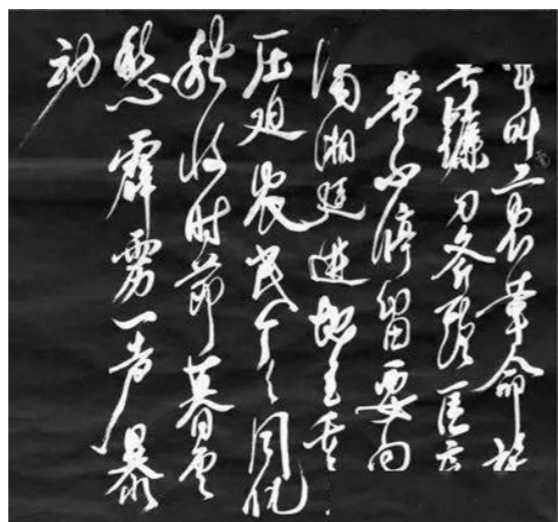 军叫工农革命旗
号镰刀斧头匡庐
带不停留要向
潇湘直進地主重
压迫农民个々同仇
秋收时节暮云
愁霹雳一声暴
动